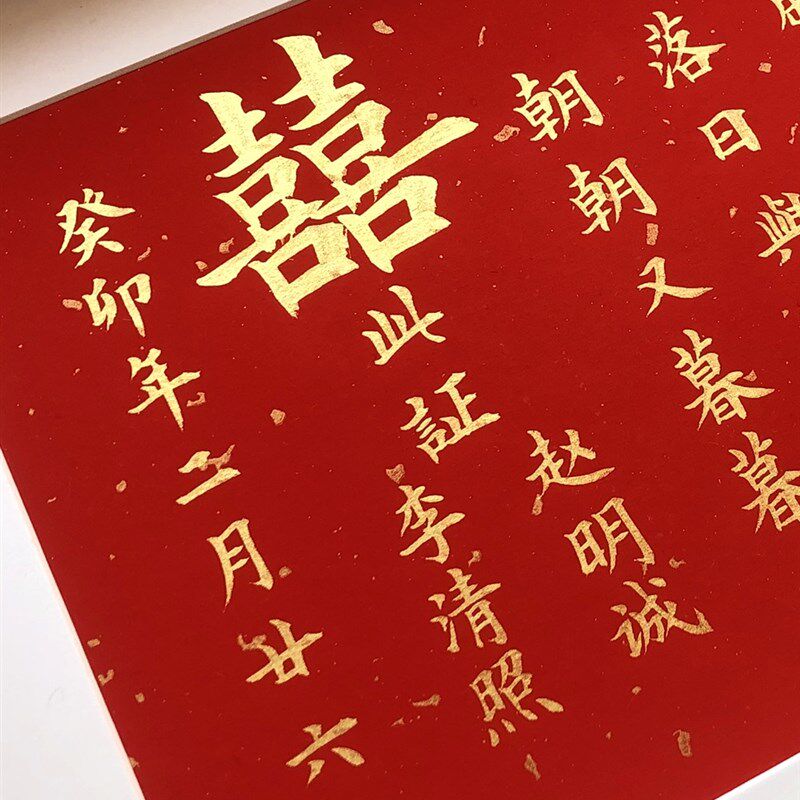 落日與
朝朝又暮暮
赵明诚
囍
此証
李清照
癸卯年二月廿六